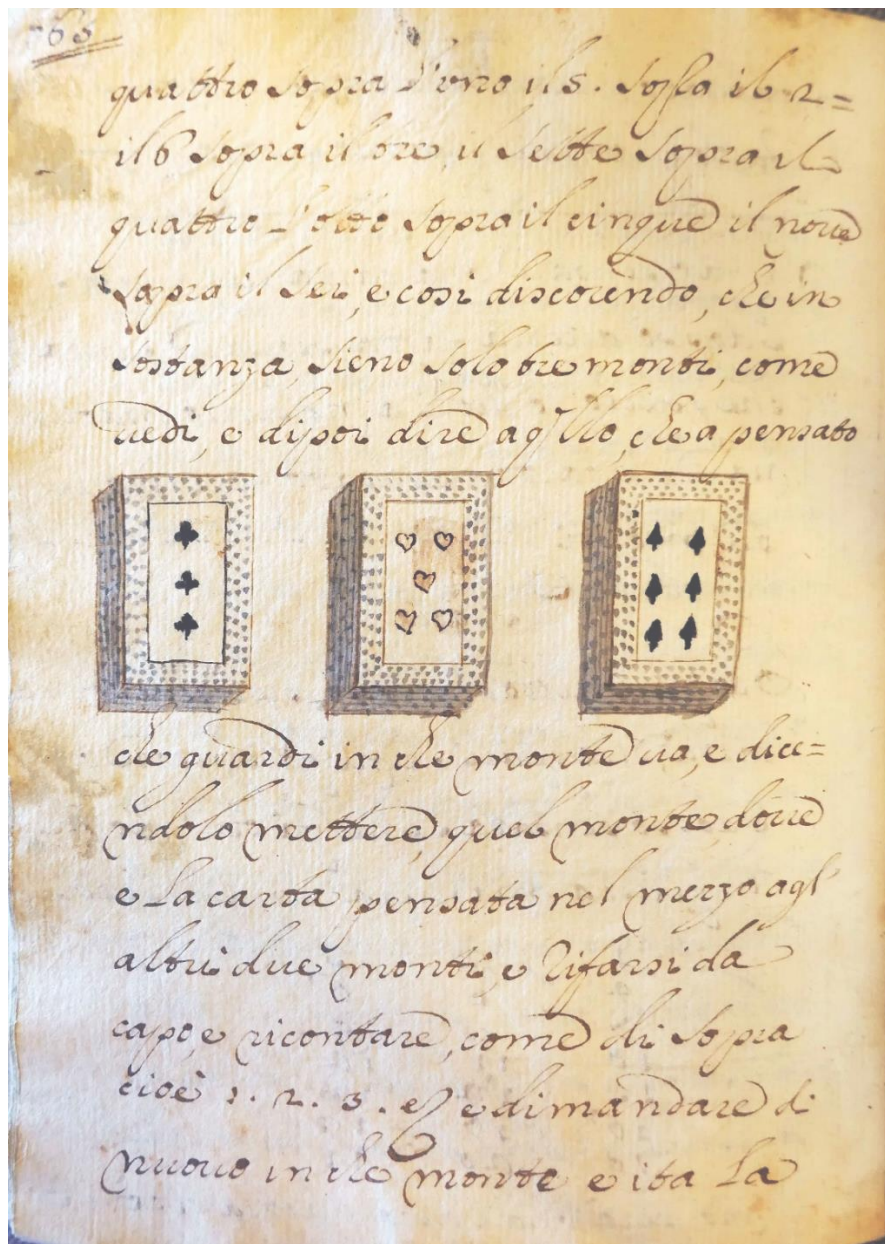 quattro sopra l'uno il 5. sopra il 2=
il 6 sopra il tre, il sette sopra il
quattro l'otto sopra il cinque il noue
sopra il sei, e cosi discorendo, che in
sostanza, sieno solo tre monti, come
uedi, e dipoi dire a qllo, che a pensato
che guardi in che monte ua, e dice=
ndolo mettere, quel monte, doue
e La carta pensata nel mezzo agl'
altri due monti, e Rifarsi da
capo, e ricontare, come di sopra
cioè 1. 2. 3. e dimandare di
nuouo in che monte e ita La